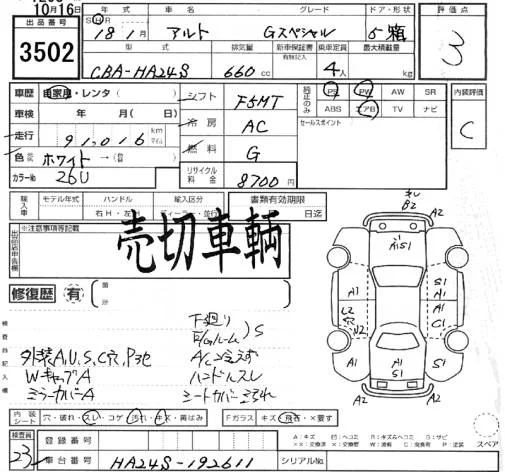 10月16日
出品番号
3502
年式 車名 グレード ドア・形状
18年1月 アルト Gスペシャル 5 箱
型式 排気量 新車保証書 乗車定員 最大積載量
有無記入
CBA-HA24S 660cc 4人 kg
評価点
3
車歴 自家用・レンタ( )
車検 年 月( 日)
走行 91,016 km マイル
色 ホワイト→(替)
カラーNo 26U
シフト F5MT
冷房 AC
燃料 G
リサイクル料金 8700円
純正のみ PS PW AW SR
ABS エアB TV ナビ
セールスポイント
内装評価
C
輸入車 モデル年式 ハンドル 輸入区分
右H・左H ディーラー・並行
書類有効期限
日迄
出品店申告欄
※注意事項等記載
売切車輌
修復歴 有
箇所
検査員記入欄
下廻り
E/Gルーム)S
外装A,U,S,C穴,P他 A/C冷えず
WキャップA ハンドルスレ
ミラーカバーA シートカバー
キレ
B2
A2 A2
A1S1
A1 S1
A1
L2 A1
穴 C1
U2
A1 A1 S1 A1
S1
A2 A2
内装シート 穴・破れ・スレ・コゲ・汚れ・キズ・黄ばみ Fガラス キズ・飛石・×要す
A:キズ
スペア
検査員
23
登録番号
車台番号 HA24S-192611 シリアルNo